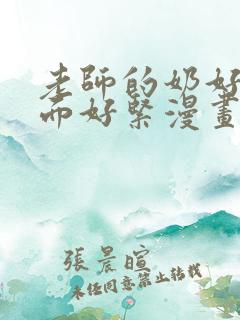 老師的奶好
而好緊漫畫
張晨暄
未任同意禁止轉載